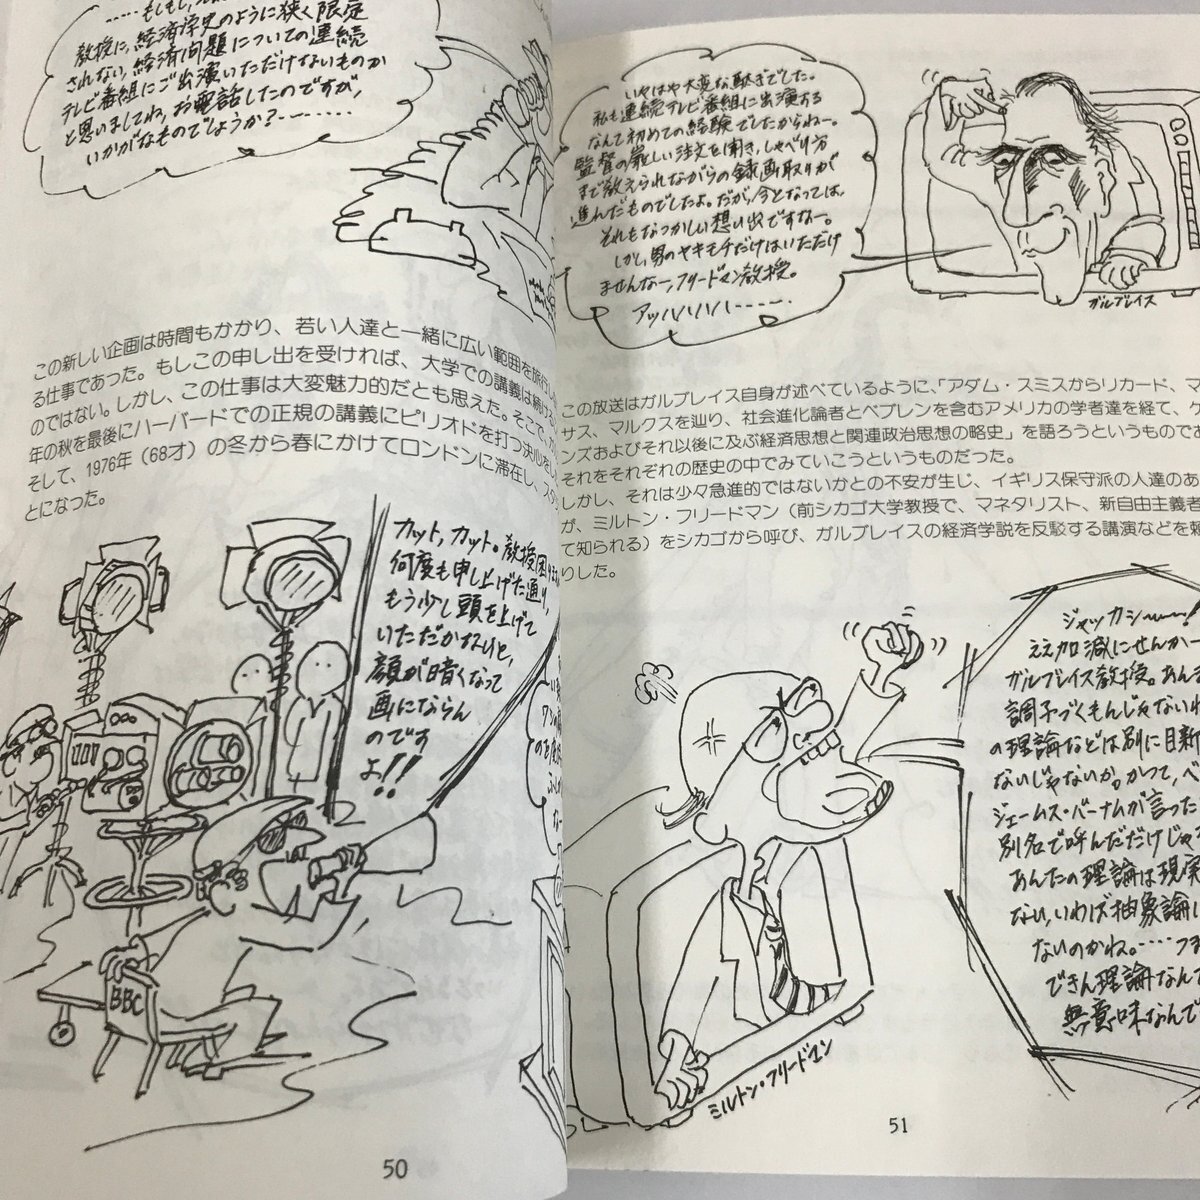 ……もしもし、
教授に、経済学史のように狭く限定
されない、経済問題についての連続
テレビ番組にご出演いただけないものか
と思いましてね、お電話したのですが、
いかがなものでしょうか?ーーー……
この新しい企画は時間もかかり、若い人達と一緒に広い範囲を旅行し
る仕事であった。もしこの申し出を受ければ、大学での講義は続ける
のではない。しかし、この仕事は大変魅力的だとも思えた。そこで、
年の秋を最後にハーバードでの正規の講義にピリオドを打つ決心をし
そして、1976年(68才)の冬から春にかけてロンドンに滞在し、スタ
とになった。
カット,カット。教授困
何度も申し上げた通り,
もう少し頭を上げて
いただかないと、
顔が暗くなって
画にならん
のです
よ!!
BBC
50
いやはや大変な騒ぎでした。
私も連続テレビ番組に出演する
なんて初めての経験でしたからねー。
監督の厳しい注文を聞き、しゃべり方
まで教えられながらの録画取りが
進んだものでしたよ。だが、今となっては、
それもなつかしい想い出ですなー。
しかし、男のヤキモチだけはいただけ
ませんなー、フリードマン教授。
アッハハハハーーーー…
ガルブレイス
この放送はガルブレイス自身が述べているように、「アダム・スミスからリカード、マ
サス、マルクスを辿り、社会進化論者とベブレンを含むアメリカの学者達を経て、ケ
ンズおよびそれ以後に及ぶ経済思想と関連政治思想の略史」を語ろうというものであ
それをそれぞれの歴史の中でみていこうというものだった。
しかし、それは少々急進的ではないかとの不安が生じ、イギリス保守派の人達のあ
が、ミルトン・フリードマン(前シカゴ大学教授で、マネタリスト、新自由主義者
て知られる)をシカゴから呼び、ガルブレイスの経済学説を反駁する講演などを頼
りした。
ジャッカシー〜〜!
ええ加減にせんかー
ガルブレイス教授。あん
調子づくもんじゃないわ
の理論などは別に目新
ないじゃないか。かつて、
ジェームス・バーナムが言った
別名で呼んだだけじゃ
あんたの理論は現実
ない,いわば抽象論
ないのかね。……つま
できん理論なん
無意味なんで
ミルトン・フリードマン
51